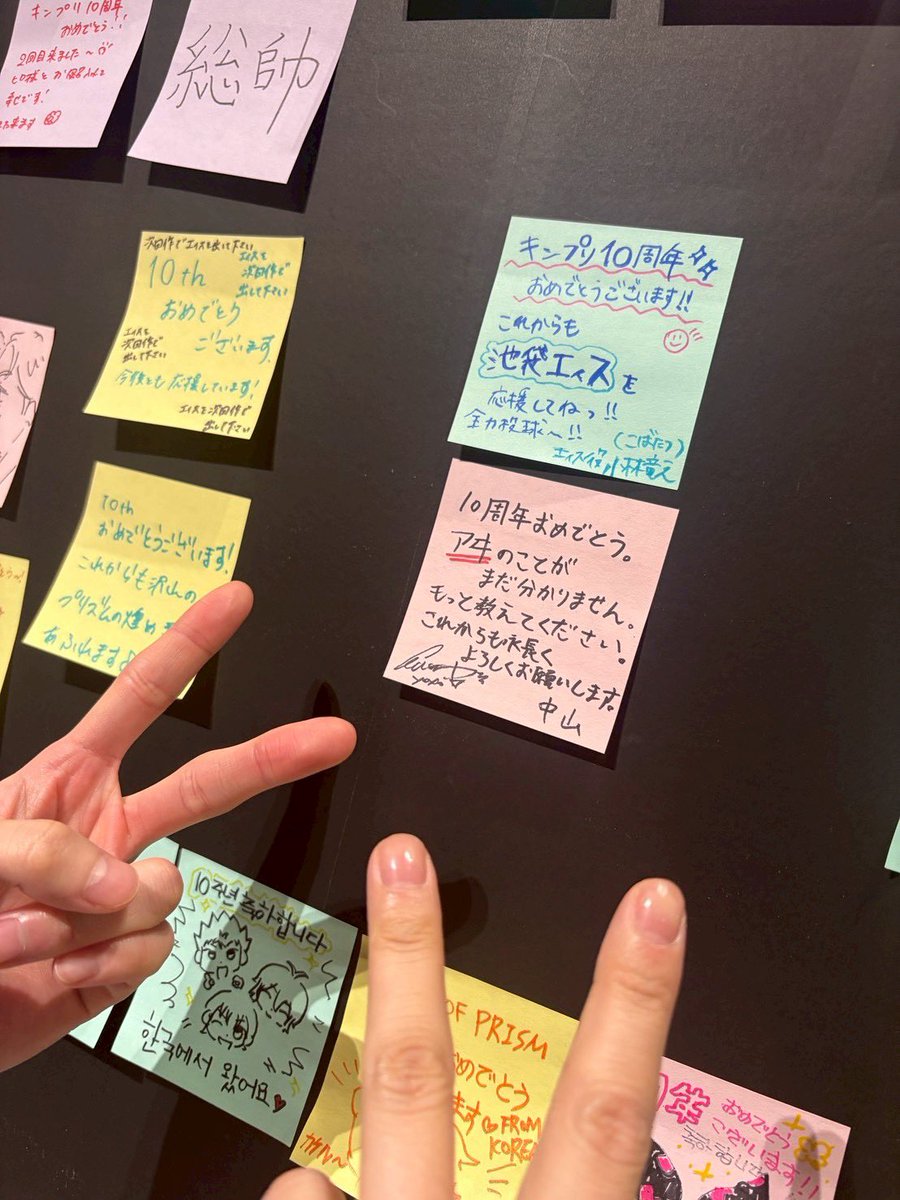 キンプリ10周年
おめでとう!!
2回目来ました〜
幸せです!
来ます
総帥
次回作でエィスを出して下さい
10th
エィスを
次回作で
出して下さい
おめでとう
ございます。
エィスを
次回作で
出して下さい
今後とも応援しています!
エィスを次回作で
出して下さい
キンプリ10周年
おめでとうございます!!
これからも
池袋エィスを
応援してねっ!!
全力投球〜!!
(こばたつ)
エィス役小林竜之
10th
おめでとうございます!
これからも沢山の
プリズムの煌め
あふれます
10周年おめでとう。
アヰのことが
まだ分かりません。
もっと教えてください。
これからも末長く
よろしくお願いします。
中山
10주년 축하합니다
한국에서 왔어요
OF PRISM
おめでとう
ます
FROM
KOREA
おめでとう
ございます!!
축하합니다